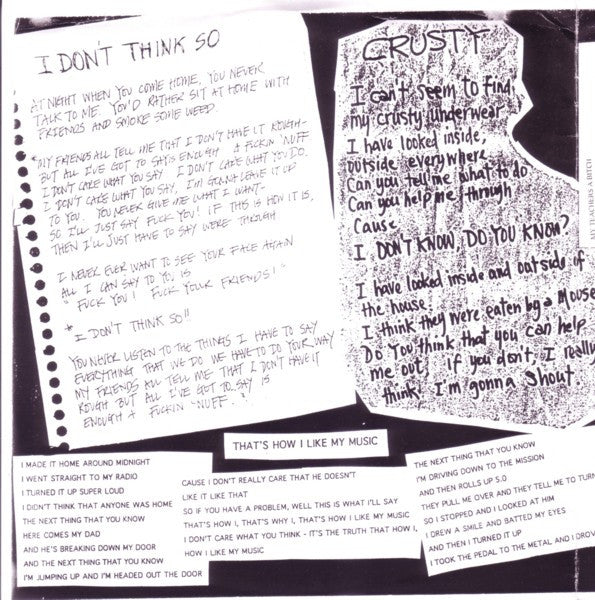 I DON'T THINK SO
AT NIGHT WHEN YOU COME HOME, YOU NEVER
TALK TO ME YOU'D RATHER SIT AT HOME WITH
FRIENDS AND SMOKE SOME WEED.
"MY FRIENDS ALL TELL ME THAT I DON'T HAVE IT ROUGH-
BUT ALL I'VE GOT TO SAY IS ENOUGH A FUCKIN' 'NUFF
I DON'T CARE WHAT YOU SAY I DON'T CARE WHAT YOU DO.
I DON'T CARE WHAT YOU SAY, I'M GONNA LEAVE IT UP
TO YOU. YOU NEVER GIVE ME WHAT I WANT-
SO I'LL JUST SAY FUCK YOU! IF THIS IS HOW IT IS,
THEN I'LL JUST HAVE TO SAY WERE THROUGH
I NEVER EVER WANT TO SEE YOUR FACE AGAIN
ALL I CAN SAY TO YOU IS
"FUCK YOU! FUCK YOUR FRIENDS!"
* I DON'T THINK SO"
YOU NEVER LISTEN TO THE THINGS I HAVE TO SAY
EVERYTHING THAT WE DO WE HAVE TO DO YOUR WAY
MY FRIENDS ALL TELL ME THAT I DON'T HAVE IT
ROUGH BUT ALL I'VE GOT TO SAY IS
ENOUGH A FUCKIN 'NUFF."
CRUSTY
I can't seem to find
my crusty underwear
I have looked inside,
outside everywhere
Can you tell me what to do
Can you help me through
Cause
I DON'T KNOW, DO YOU KNOW?
I have looked inside and outside of
the house.
I think they were eaten by a mouse
Do You think that you can help
me out, if you don't, I really
think I'm gonna shout.
MY TEACHERS A BITCH
THAT'S HOW I LIKE MY MUSIC
I MADE IT HOME AROUND MIDNIGHT
I WENT STRAIGHT TO MY RADIO
I TURNED IT UP SUPER LOUD
I DIDN'T THINK THAT ANYONE WAS HOME
THE NEXT THING THAT YOU KNOW
HERE COMES MY DAD
AND HE'S BREAKING DOWN MY DOOR
AND THE NEXT THING THAT YOU KNOW
I'M JUMPING UP AND I'M HEADED OUT THE DOOR
CAUSE I DON'T REALLY CARE THAT HE DOESN'T
LIKE IT LIKE THAT
SO IF YOU HAVE A PROBLEM, WELL THIS IS WHAT I'LL SAY
THAT'S HOW I, THAT'S WHY I, THAT'S HOW I LIKE MY MUSIC
I DON'T CARE WHAT YOU THINK - IT'S THE TRUTH THAT HOW I,
HOW I LIKE MY MUSIC
THE NEXT THING THAT YOU KNOW
I'M DRIVING DOWN TO THE MISSION
AND THEN ROLLS UP 5.0
THEY PULL ME OVER AND THEY TELL ME TO TURN
SO I STOPPED AND I LOOKED AT HIM
I DREW A SMILE AND BATTED MY EYES
AND THEN I TURNED IT UP
I TOOK THE PEDAL TO THE METAL AND I DROV